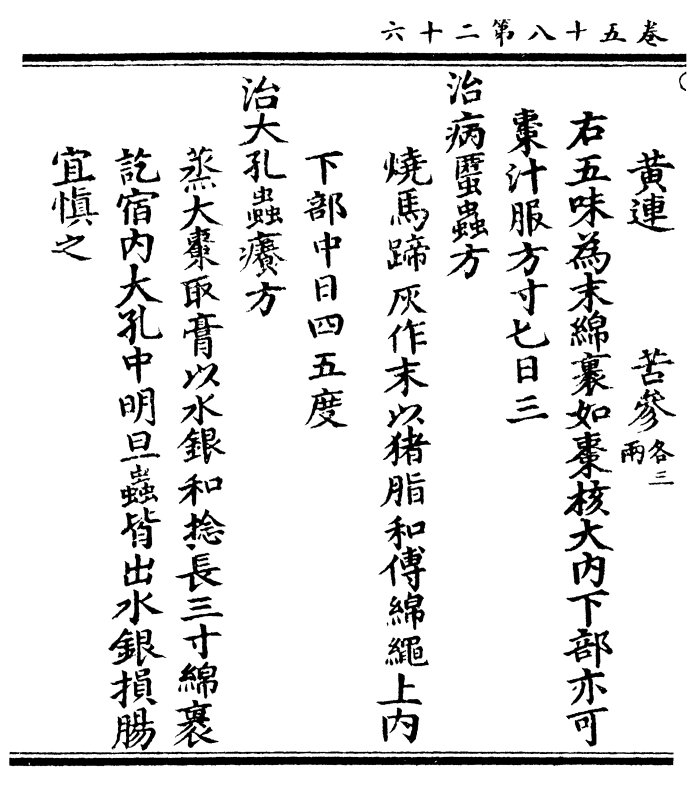 卷五十八第二十六
黃連　苦參各三兩
右五味為末綿裹如棗核大內下部亦可
棗汁服方寸匕日三
治病䘌蟲方
燒馬蹄灰作末以猪脂和傅綿繩上內
下部中日四五度
治大孔蟲癢方
蒸大棗取膏以水銀和捻長三寸綿裹
訖宿內大孔中明旦蟲皆出水銀損腸
宜慎之